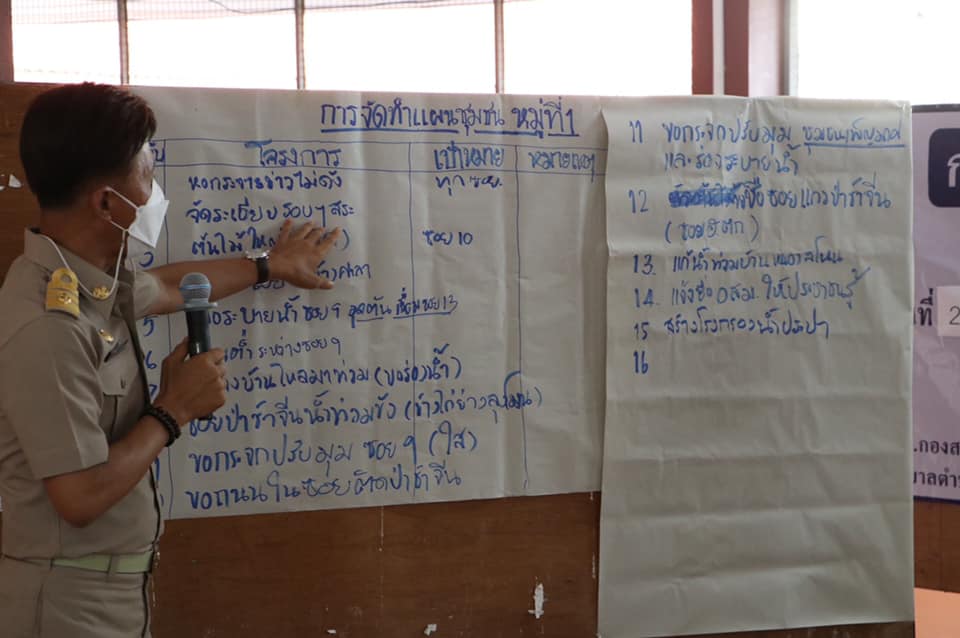 การจัดทำแผนชุมชน หมู่ที่ 1
โครงการ เป้าหมาย หมายเหตุ
หอกระจายข่าวไม่ดัง ทุกซอย
จัดระเบียบรอบๆ สระ
ต้นไม้ใหญ่ ซอย 10
5 ระบายน้ำซอย 9 อุดตัน เชื่อมซอย 13
6 ระหว่างซอย 9
บ้านไหลมาท่วม (ขอร่องน้ำ)
ซอยป่าช้าจีนน้ำท่วมขัง (ข้างไก่ย่างลุงโมน)
ขอกระจกปรับมุม ซอย 9 (ใส)
ขอถนนในซอยติดป่าช้าจีน
11 ขอกระจกปรับมุม
และร่องระบายน้ำ
12 ชื่อซอยแถวป่าช้าจีน
13. แก้น้ำท่วมบ้าน
14. แจ้งชื่อ อสม. ให้ประชาชนรู้
15 สร้างโรงกรองน้ำประปา
16
ก
ที่ 2
.กองส
บาลตำ